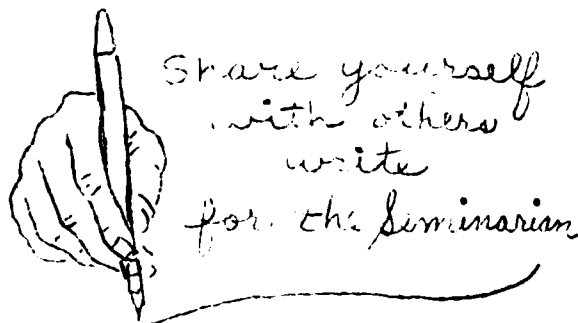 Share yourself
with others
write
for the Seminarian